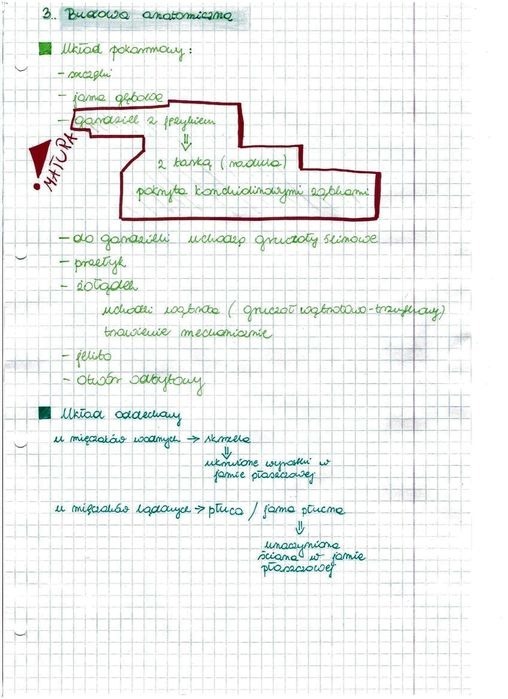 3. Budowa anatomiczna
Układ pokarmowy:
- szczęki
- jama gębowa
- gardziel z językiem
⇓
MATURA!
z tarką (radula)
pokryta konchiolinowymi ząbkami
- do gardzieli uchodzą gruczoły ślinowe
- przełyk
- żołądek
uchodzi wątroba (gruczoł wątrobowo-trzustkowy)
trawienie mechaniczne
- jelito
- otwór odbytowy
Układ oddechowy
u mięczaków wodnych → skrzela
⇓
ukrwione wyrostki w
jamie płaszczowej
u mięczaków lądowych → płuca / jama płucna
⇓
unaczyniona
ściana w jamie
płaszczowej